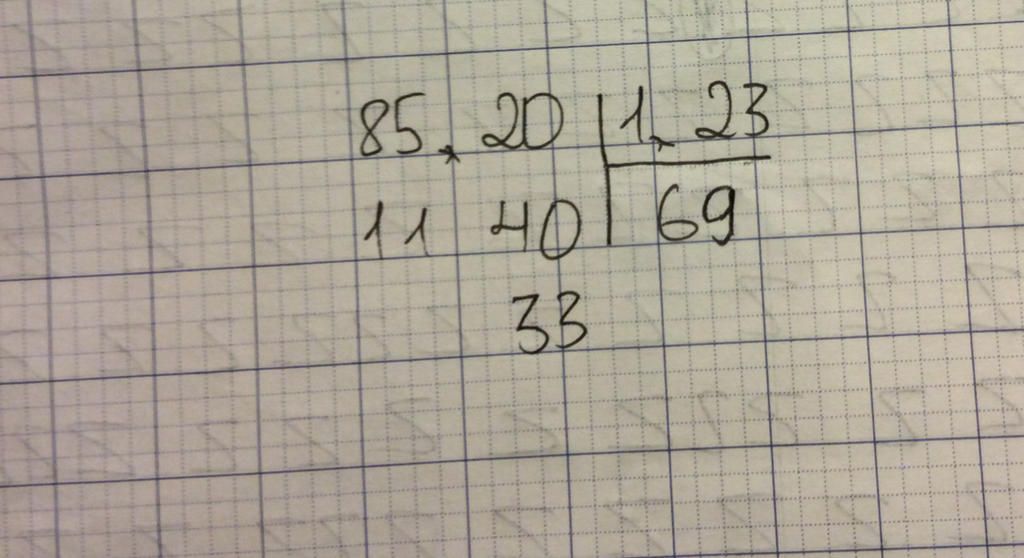 85.20 | 1.23
11 40 | 69
33